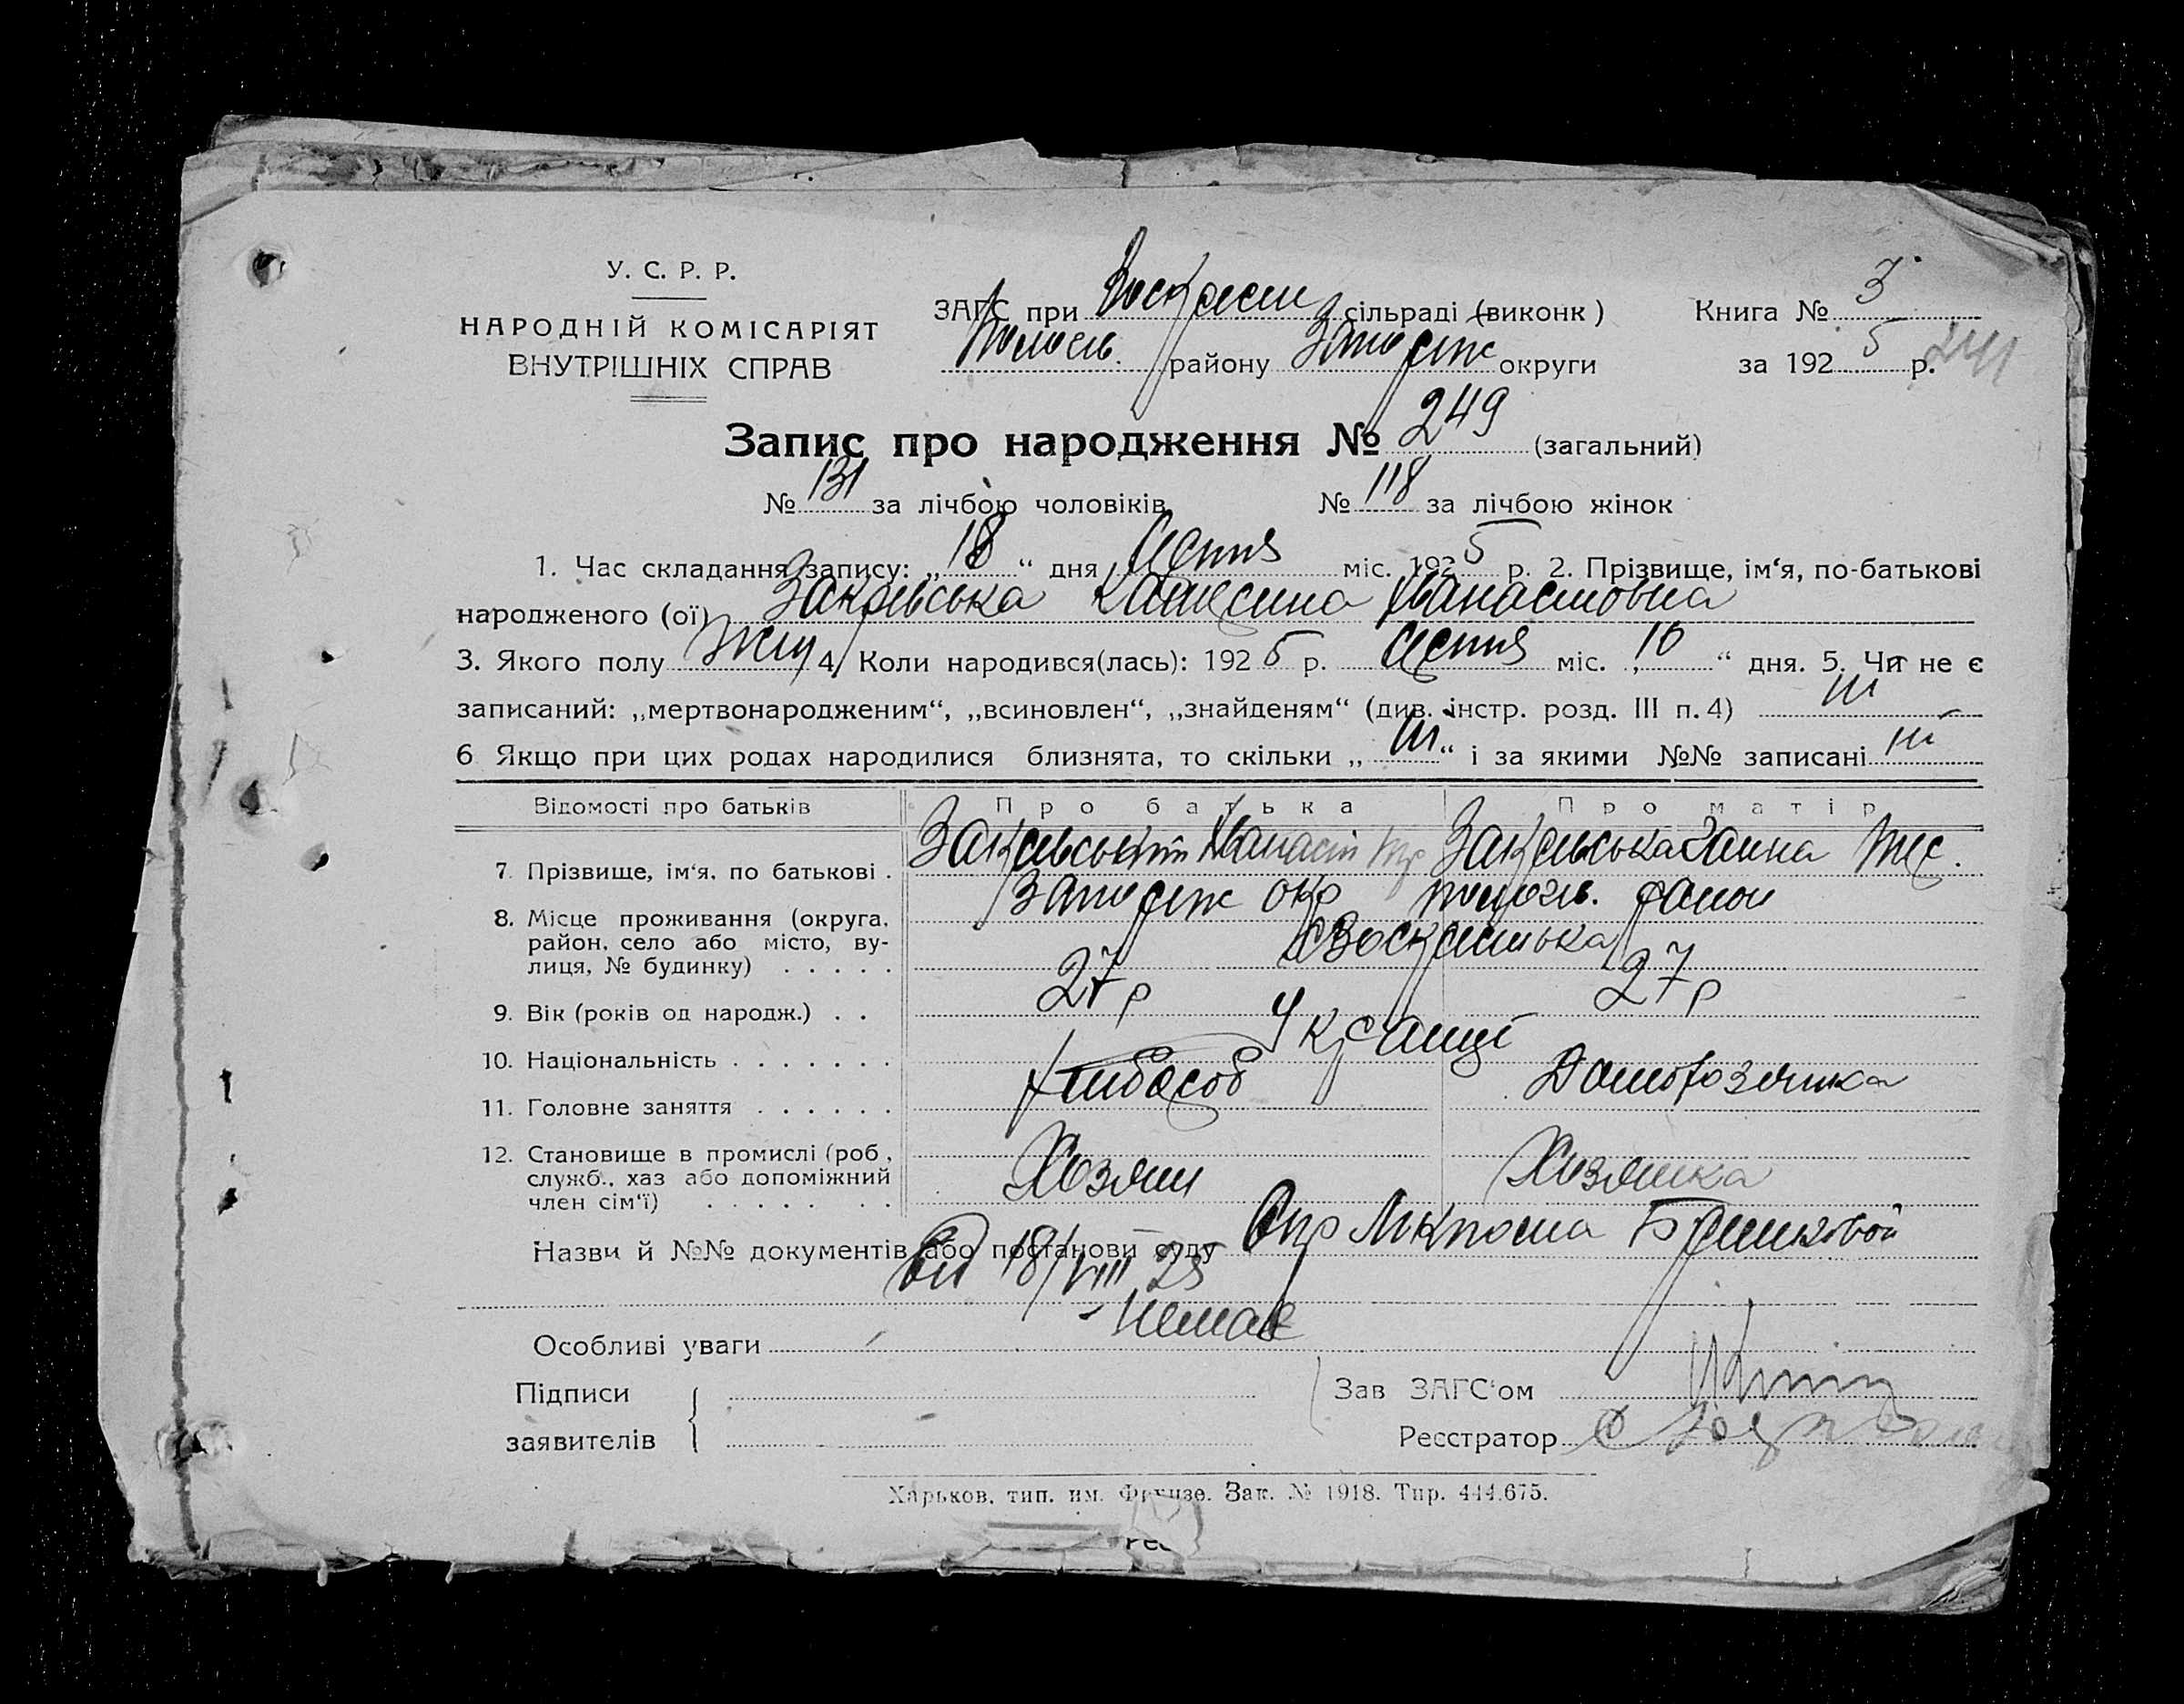 У. С. Р. Р.
НАРОДНІЙ КОМІСАРІЯТ
ВНУТРІШНІХ СПРАВ
ЗАГС при Воскресен сільраді (виконк)
Пологів. району Запоріж округи
Книга № 3
за 1925 р. 241
Запис про народження № 249 (загальний)
№ 131 за лічбою чоловіків № 118 за лічбою жінок
1. Час складання запису: „18“ дня Серпня міс. 1925 р. 2. Прізвище, ім‘я, по-батькові
народженого (ої) Закревська Катерина Панасовна
3. Якого полу жін 4. Коли народився(лась): 1925 р. Серпня міс. „10“ дня. 5. Чи не є
записаний: „мертвонародженим“, „всиновлен“, „знайденям“ (див. інстр. розд. III п. 4) ні
6 Якщо при цих родах народилися близнята, то скільки „ні“ і за якими №№ записані ні
Відомості про батьків Про батька Про матір
7. Прізвище, ім‘я, по батькові . Закревський Панас Закревська Ганна
8. Місце проживання (округа, район, село або місто, вулиця, № будинку) . . . . . Запоріж окр Пологів. район
с Воскресенька
9. Вік (років од народж.) . . 27 р 27 р
10. Національність . . . . . . . Українці
11. Головне заняття . . . . . . Хлібороб Домогозяйка
12. Становище в промислі (роб., служб., хаз або допоміжний член сім‘ї) . . . . . . . Хозяин Хозяйка
Назви й №№ документів або постанови суду
від 18/VIII 25
Особливі уваги Немає
Підписи
заявителів
Зав ЗАГС‘ом
Реєстратор
Харьков. тип. им. Фрунзе. Зак. № 1918. Тир. 444.675.